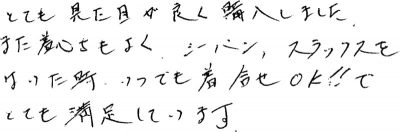 とても見た目が良く購入しました.
また着心ちもよく、ジーパン, スラックスを
はいた時、いつでも着合せOK!!で
とても満足しています.